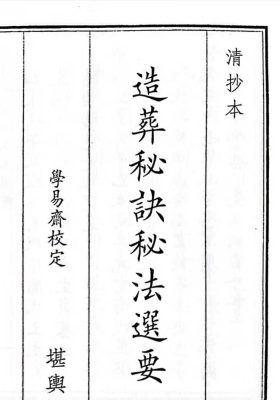 清抄本
造葬秘訣秘法選要
學易齋校定
堪輿